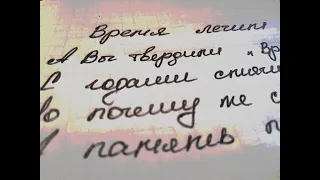 Время лечит
А Вы твердили "Вр
С годами
Но почему же с
И память п